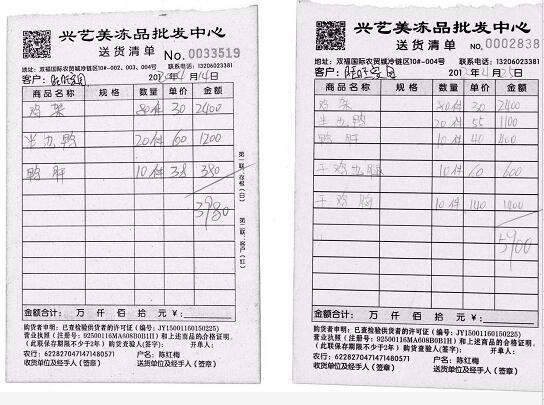 兴艺美冻品批发中心
送货清单 No.0033519
地址：双福国际农贸城冷链区10#-002、003、004号 联系电话：13206023381
客户： 年4月14日
商品名称 规格 数量 单价 金额
鸡架 80件 30 2400
半边鸭 20件 60 1200
鸭肝 10件 38 380
3980
第一联：存根（白） 第二联：客户（红）
金额合计： 万 仟 佰 拾 元
购货者申明：已查检验供货者的许可证（编号：JY15001160150225）
营业执照（注册号：92500116MA608B0B1H）和上述商品的合格证明。
（此联保存期限不少于2年）购货查验人(签字)： 开单人：
农行：6228270471471480571 户名：陈红梅
收货单位及经手人（签章） 送货单位及经手人（签章）
兴艺美冻品批发中心
送货清单 No.0002838
地址：双福国际农贸城冷链区10#-004号 联系电话：13206023381
客户： 年4月25日
商品名称 规格 数量 单价 金额
鸡架 80件 30 2400
半边鸭 20件 55 1100
鸭肝 10件 40 400
10件 60 600
10件 140 1400
5900
金额合计： 万 仟 佰 拾 元
购货者申明：已查检验供货者的许可证（编号：JY15001160150225）
营业执照（注册号：92500116MA608B0B1H）和上述商品的合格证明。
（此联保存期限不少于2年）购货查验人(签字)： 开单人：
农行：6228270471471480571 户名：陈红梅
收货单位及经手人（签章） 送货单位及经手人（签章）